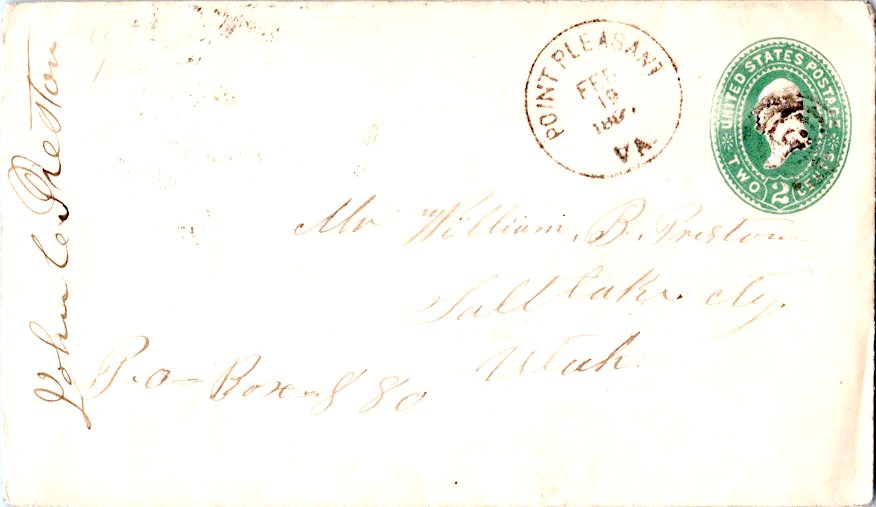 John C. Preston
POINT PLEASANT
FEB
18
VA.
UNITED STATES POSTAGE
TWO 2 CENTS
Mr William. B. Preston
Salt Lake city.
Utah
P. O - Box 880